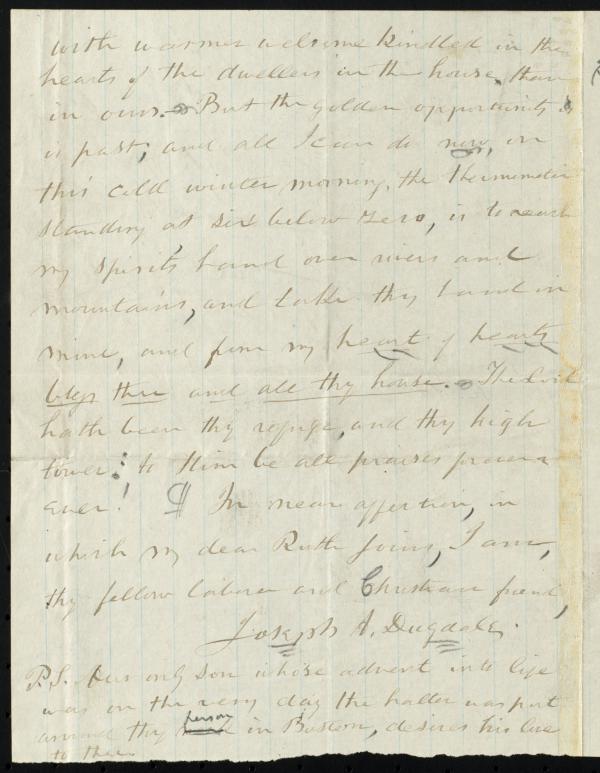 with warmer welcome kindled in the
hearts of the dwellers in the house, than
in ours. But the golden opportunity
is past; and all I can do now, on
this cold winter morning, the thermometer
standing at six below zero, is to reach
my spirit's hand over rivers and
mountains, and take thy hand in
mine, and from my heart of hearts
bless thee and all thy house. The Lord
hath been thy refuge, and thy high
tower: to Him be all praises forever
ever! ¶ In near affection, in
which my dear Ruth joins, I am,
thy fellow laborer and Christian friend,
Joseph A. Dugdale.
P.S. Our only son whose advent into life
was on the very day the halter was put
around thy person in Boston, desires his love
to thee